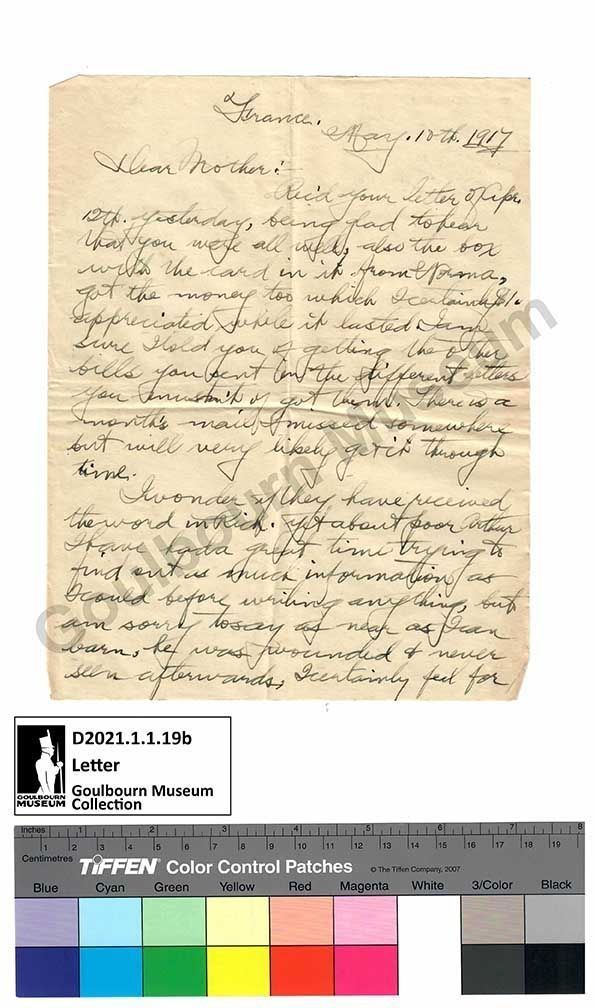 France.
May. 10th. 1917
Dear Mother:-
Rec'd your letter of Apr.
12th. yesterday, being glad to hear
that you were all well, also the box
with the card in it from Norma,
got the money too which I certainly
appreciated while it lasted. I am
sure I told you of getting the other
bills you sent in the different letters
you mustn't of got them. There is a
month's mail I missed somewhere
but will very likely get it through
time.
I wonder if they have received
the word in Rich. yet about poor Arthur
I have had a great time trying to
find out as much information as
I could before writing anything, but
am sorry to say as near as I can
learn, he was wounded & never
seen afterwards, I certainly feel for
Goulbourn Museum
GOULBOURN
MUSEUM
D2021.1.1.19b
Letter
Goulbourn Museum
Collection
Inches 1 2 3 4 5 6 7 8
Centimetres 1 2 3 4 5 6 7 8 9 10 11 12 13 14 15 16 17 18 19
TIFFEN Color Control Patches © The Tiffen Company, 2007
Blue Cyan Green Yellow Red Magenta White 3/Color Black